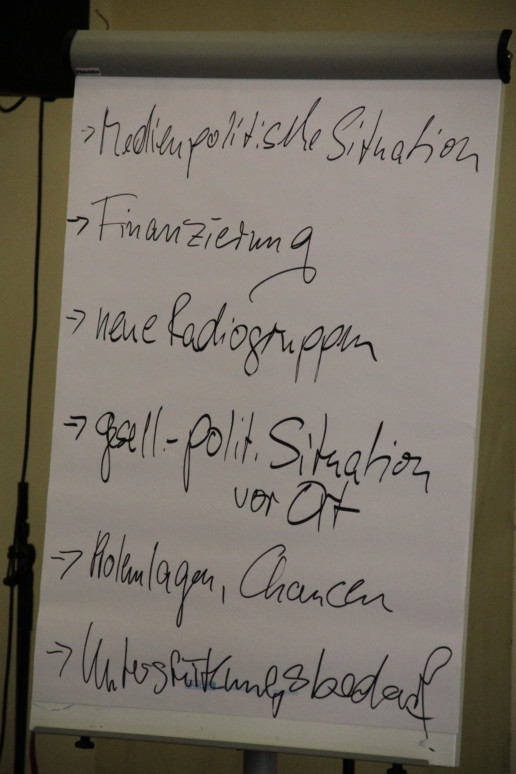 → Medienpolitische Situation
→ Finanzierung
→ neue Radiogruppen
→ gesell.-polit. Situation
vor Ort
→ Chancen
→ Unterstützungsbedarf